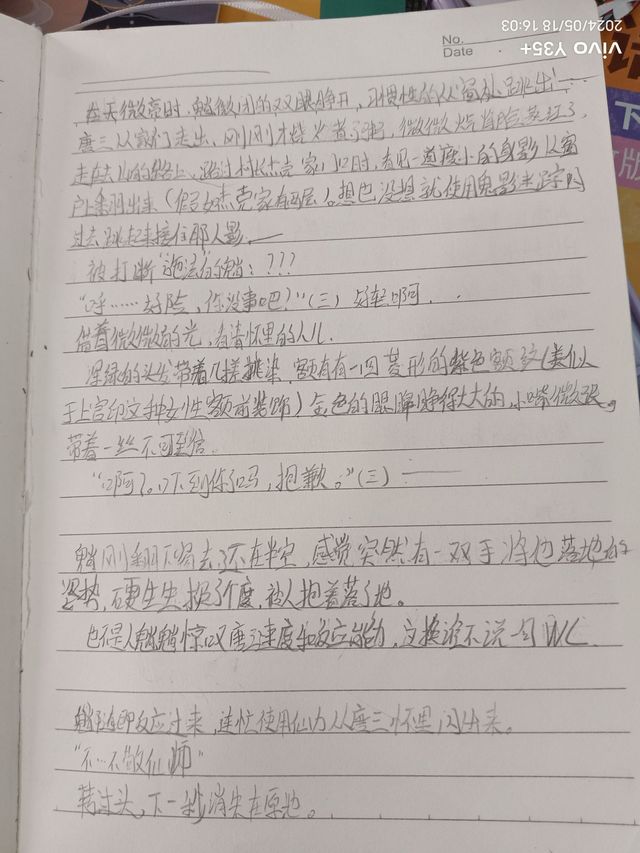 2024/05/18 16:03
vivo Y35+
No.
Date
在天微亮时,魈微闭的双眼睁开,习惯性的从窗处跳出!
唐三从家门走出,刚刚才烧火煮了粥,微微火焰将脸蒸红了,
走在去山的路上,路过村长杰克家门口时,看见一道瘦小的身影从窗
户上翻出来(假如杰克家有两层)。想也没想就使用鬼影迷踪闪
过去跳起来接住那人影。
被打断"施法"的魈:???
"呼……好险,你没事吧?"(三)好轻啊...
借着微微的光,看清怀里的人儿
深绿的头发带着几搓挑染,额有有一四菱形的紫色额纹(类似
于上官印文种女性额前装饰)金色的眼眸睁得大大的,小嘴微张,
带着一丝不可置信。
"啊?吓到你了吗,抱歉。"(三)
魈刚翻下窗去了不在半空,感觉突然有一双手将他落地的
姿势,硬生生换了个度,被人抱着落了地。
也不是人魈魈惊叹唐三速度和反应能力,交换谁不说句WC
魈随即反应过来,连忙使用仙力从唐三怀里闪出来。
"不…不敬仙师"
藉过头,下一秒消失在原地。